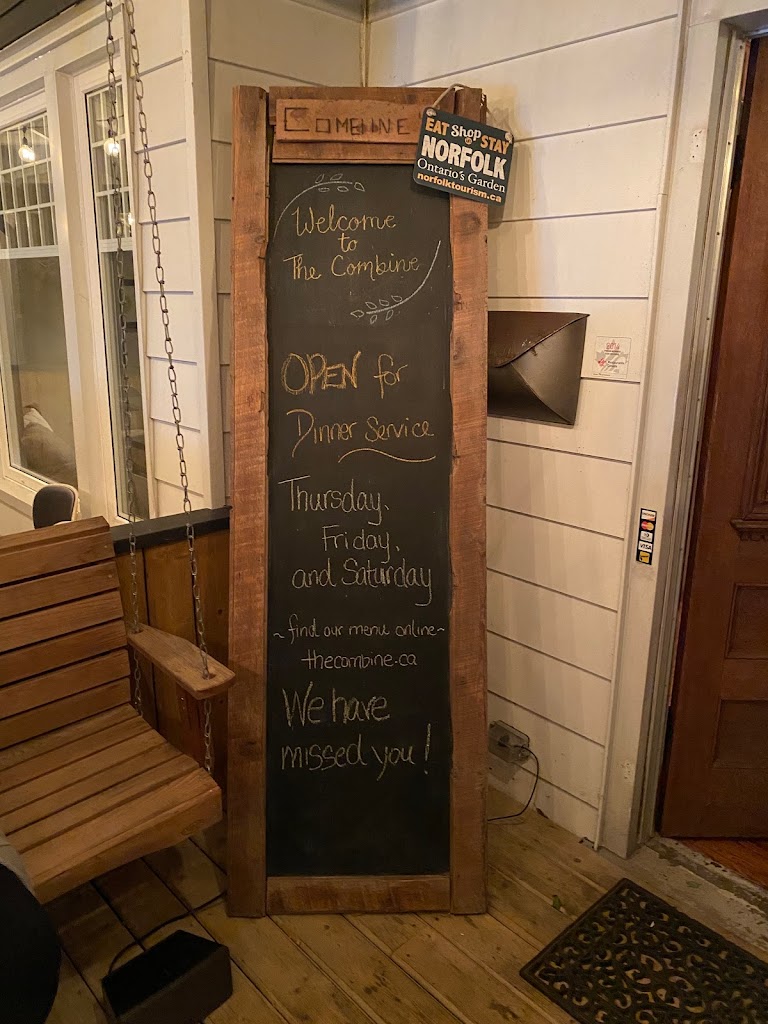 COMBINE
EAT Shop & STAY
NORFOLK
Ontario's Garden
norfolktourism.ca
Welcome
to
The Combine
OPEN for
Dinner Service
Thursday,
Friday,
and Saturday
~ find our menu online ~
thecombine.ca
We have
missed you!
VISA